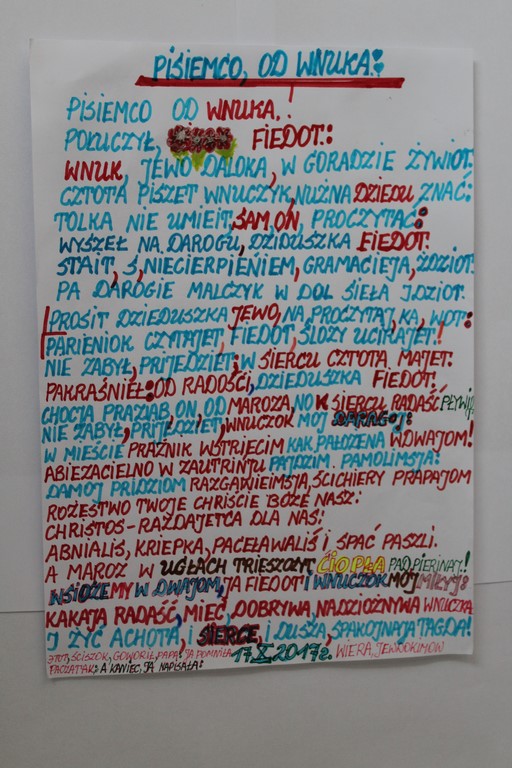 PISIEMCO, OD WNUKA:
PISIEMCO OD WNUKA,
POŁUCZYŁ, FIEDOT:
WNUK, JEWO DALOKA, W GORADZIE ŻYWIOT.
CZTOTA PISZET WNUCZYK, NUŻNA DZIEDU, ZNAĆ:
TOLKA NIE UMIEIT, SAM, ON, PROCZYTAĆ:
WYSZEŁ NA DAROGU, DZIDUSZKA FIEDOT.
STAIT, S, NIECIERPIENIEM, GRAMACIEJA, ŻDZIOT.
PA DARÓGIE MALCZYK W DOL SIEŁA IDZIOT.
PROSIT DZIEDUSZKA JEWO, NA, PROCZYTAJ, KA, WOT:
PARIENIOK CZYTAJET, FIEDOT, ŚLOZY UCIRAJET!
NIE ZABYŁ, PRIJEDZIET; W SIERCU CZTOTA MAJET.
PAKRAŚNIEŁ: OD RADOŚCI, DZIEDUSZKA FIEDOT.
CHOCJA PRAZIĄB, ON OD MAROZA, NO K SIERCU RADAŚĆ PŁYWIO
NIE ZABYŁ, PRIJEDZIET, WNUCZOK MOJ DARAGOJ:
W MIEŚCIE PRAŹNIK WSTRIECIM KAK PAŁOŻENA WDWAJOM!
ABIEZACIELNO W ZAUTRINJU PAJDZIM PAMOLIMSJA:
DAMOJ PRIDZIOM RAZGAWIEIMSJA, ŚCICHIERY PRAPAJOM
ROŻESTWO TWOJE CHRIŚCIE BOŻE NASZ:
CHRISTOS - RAŻDAJETCA DLA NAS!
ABNIALIŚ, KRIEPKA, PACEŁAWALIŚ I SPAĆ PASZLI.
A MAROZ W UGŁACH TRIESZCZYT CIOPŁA PAD PIERINAJ!
WSIDZIEMY W DWAJOM, JA FIEDOT I WNUCZOK MÓJ MIŁYJ:
KAKAJA RADAŚĆ, MIEĆ, DOBRYWA, NADZIOŻNYWA WNUCZKA
I ŻYĆ ACHOTA, I SIERCE, I DUSZA, SPAKOJNAJA TAGDA!
ETOT, ŚCISZOK, GOWORIŁ, PAPA! JA POMNIŁA 17.X.2017r. WIERA, JEWDOKIMOW
PACZATAK: A KANIEC, JA NAPISAŁA: